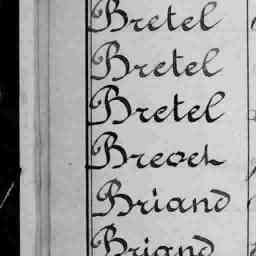 Bretel
Bretel
Bretel
Brevet
Briand
Briand